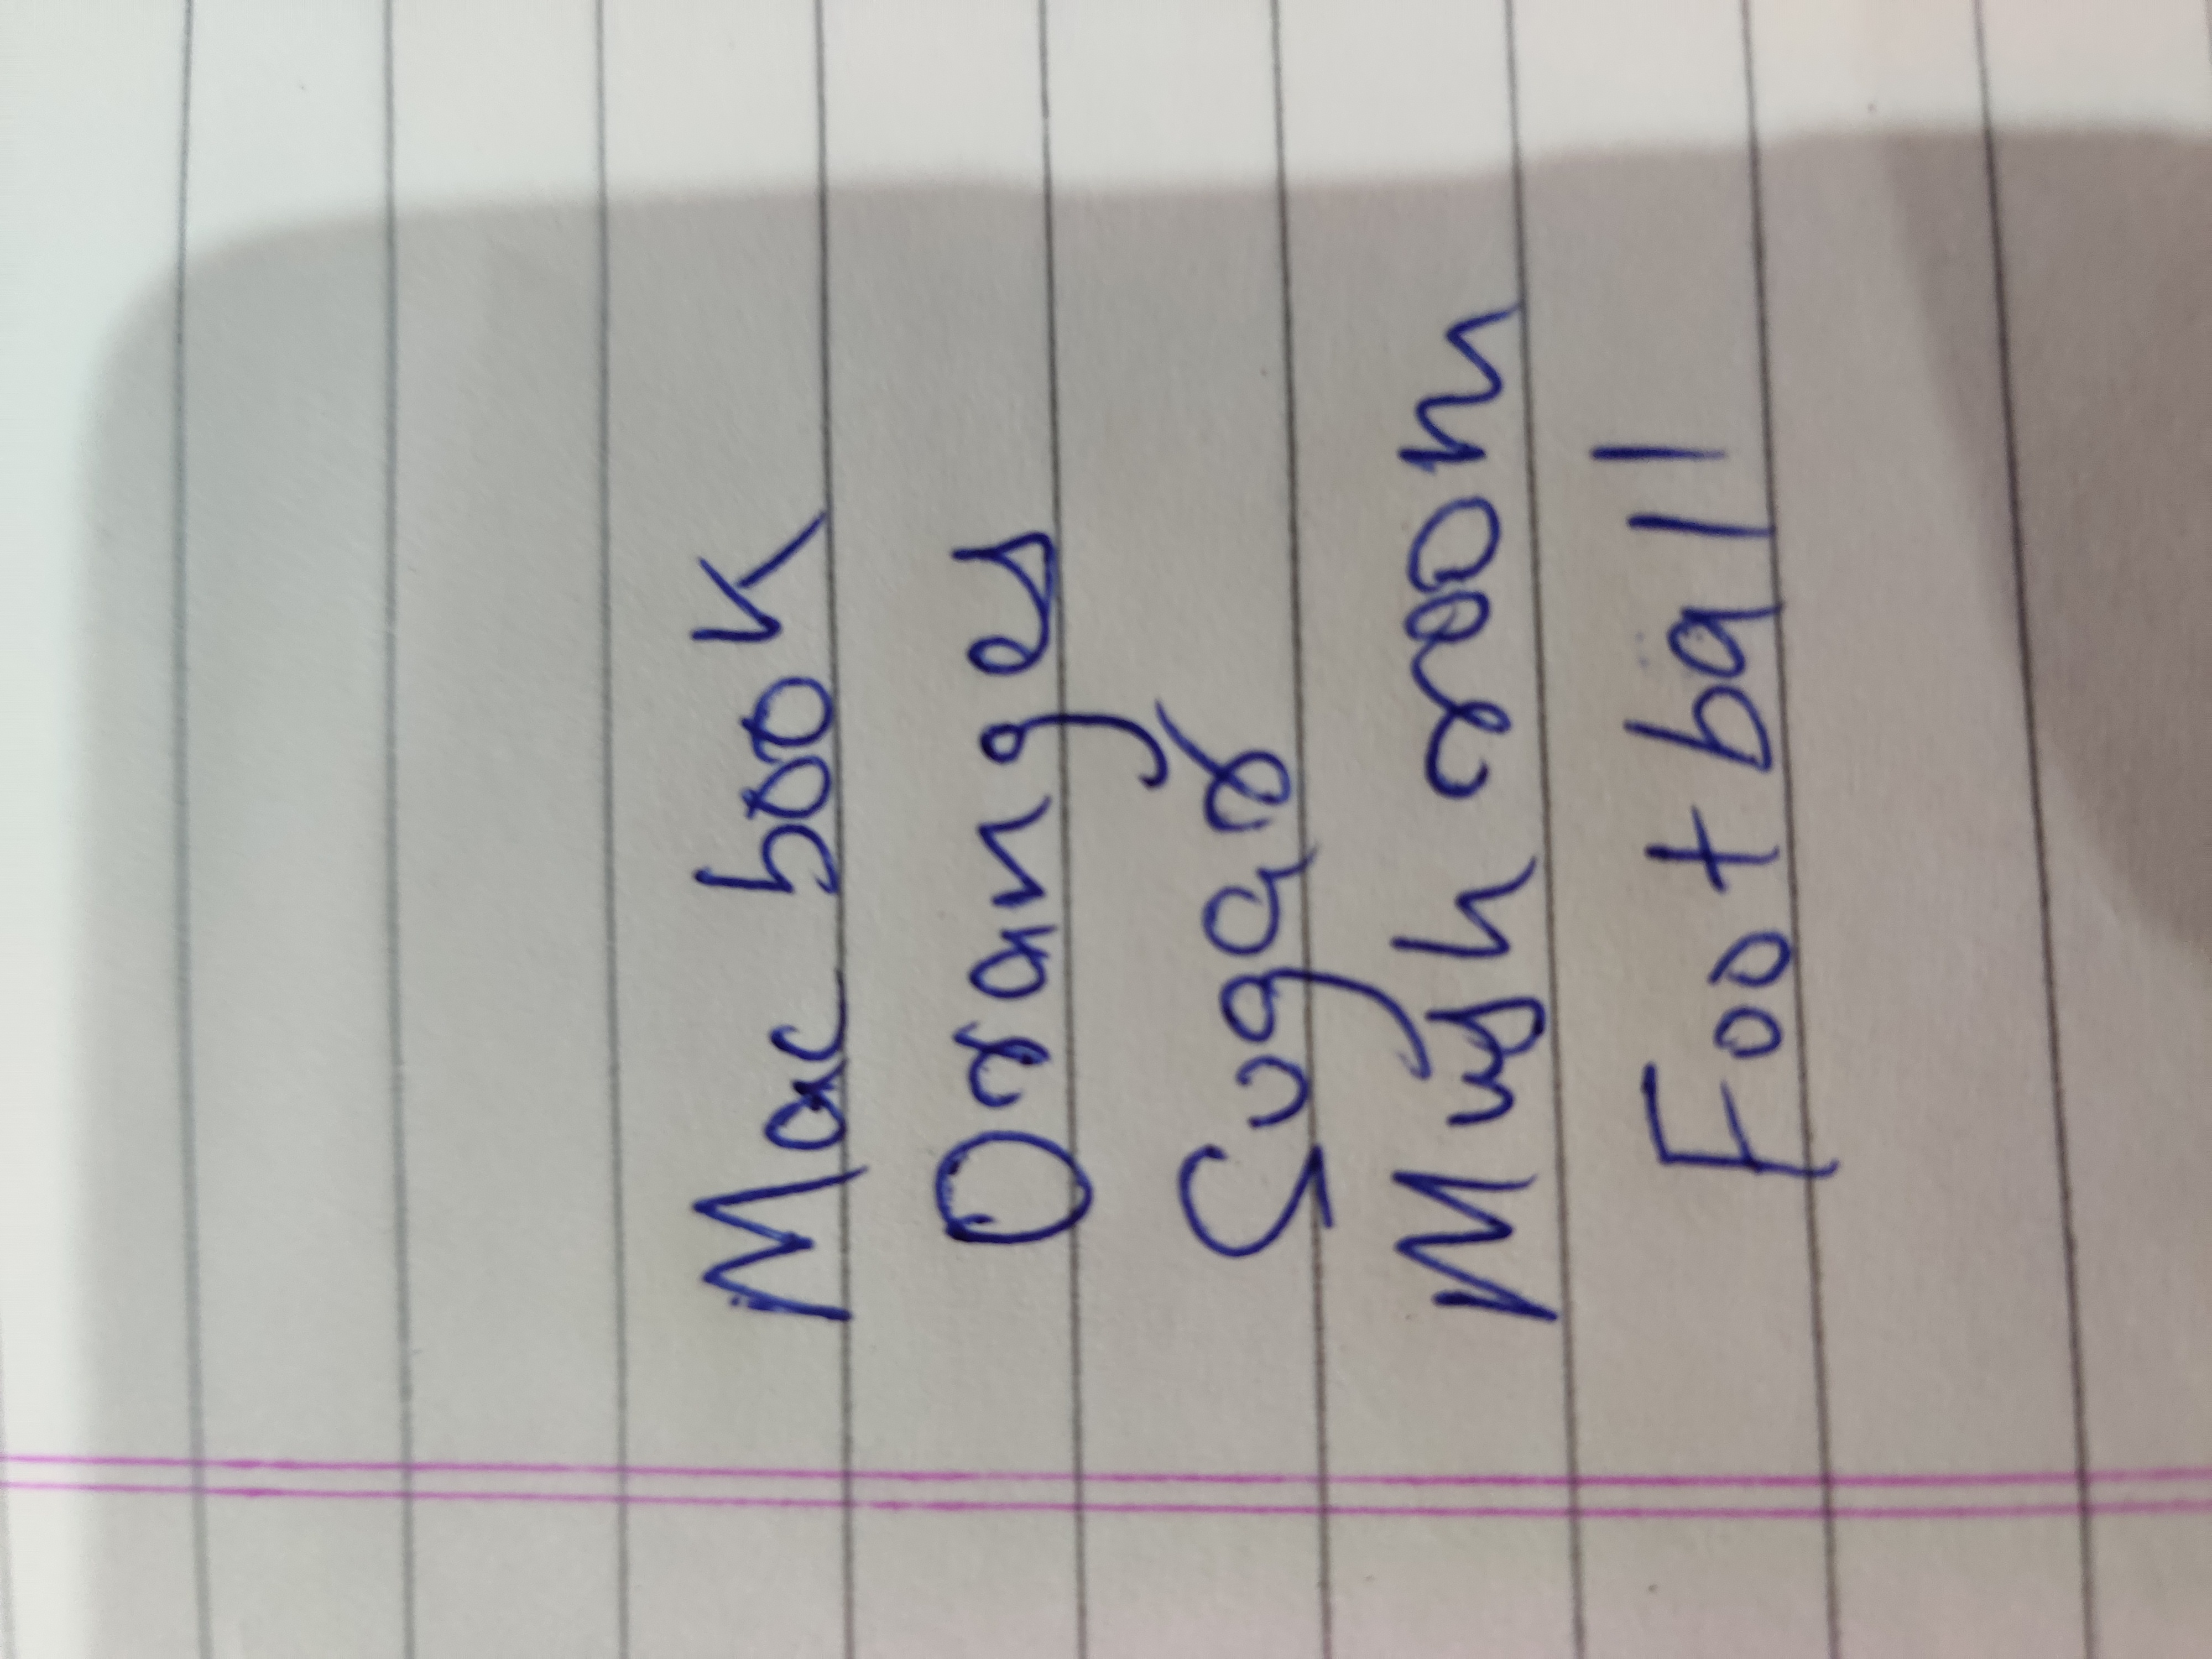 Mac book
Oranges
Sugar
Mush room
Football